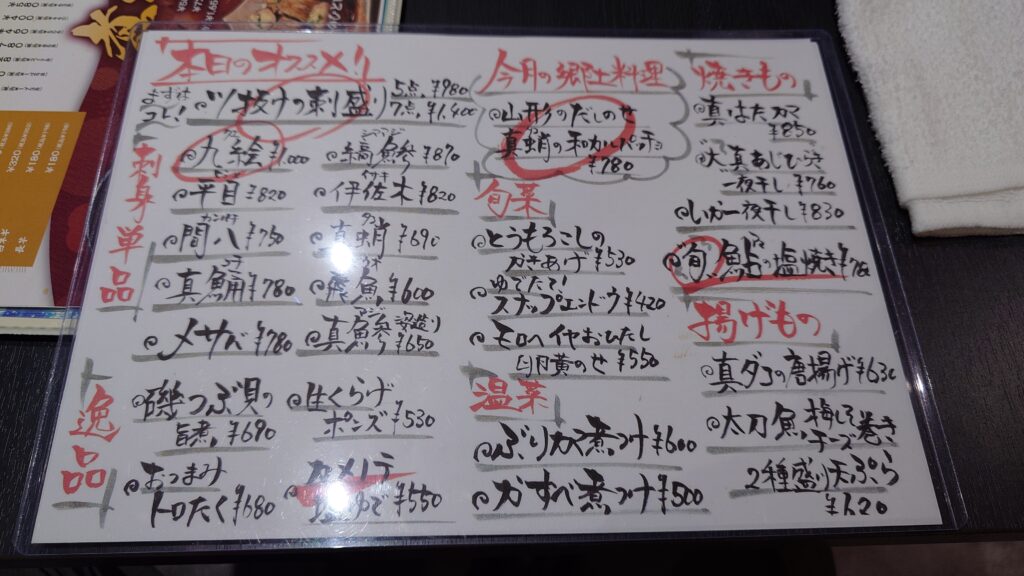 本日のオススメ!
まずはコレ! ツマ抜けの刺盛り 5点¥980
7点¥1,400
刺身単品
クエ
九絵¥1,000
シマアジ
縞鰺¥870
平目¥820
イサキ
伊佐木¥820
カンパチ
間八¥750
タコ
真蛸¥690
真鯒¥780
飛魚¥600
メサバ¥780
アジ
真鰺 姿造り
¥650
逸品
磯つぶ貝の
旨煮¥690
生くらげ
ポンズ¥530
おつまみ
トロたく¥680
カメノテ
塩ゆで¥550
今月の郷土料理
山形のだしのせ
真蛸の和カルパッチョ
¥780
旬菜
とうもろこしの
かきあげ¥530
ゆでたて!
スナップエンドウ¥420
モロヘイヤおひたし
卵黄のせ¥550
温菜
ぶりカマ煮つけ¥600
かすべ煮つけ¥500
焼きもの
真はたカマ
¥850
大真あじひらき
一夜干し¥760
いか一夜干し¥830
旬 鮎の塩焼き
揚げもの
真ダコの唐揚げ¥630
太刀魚 梅しそ チーズ 巻き
2種盛り天ぷら